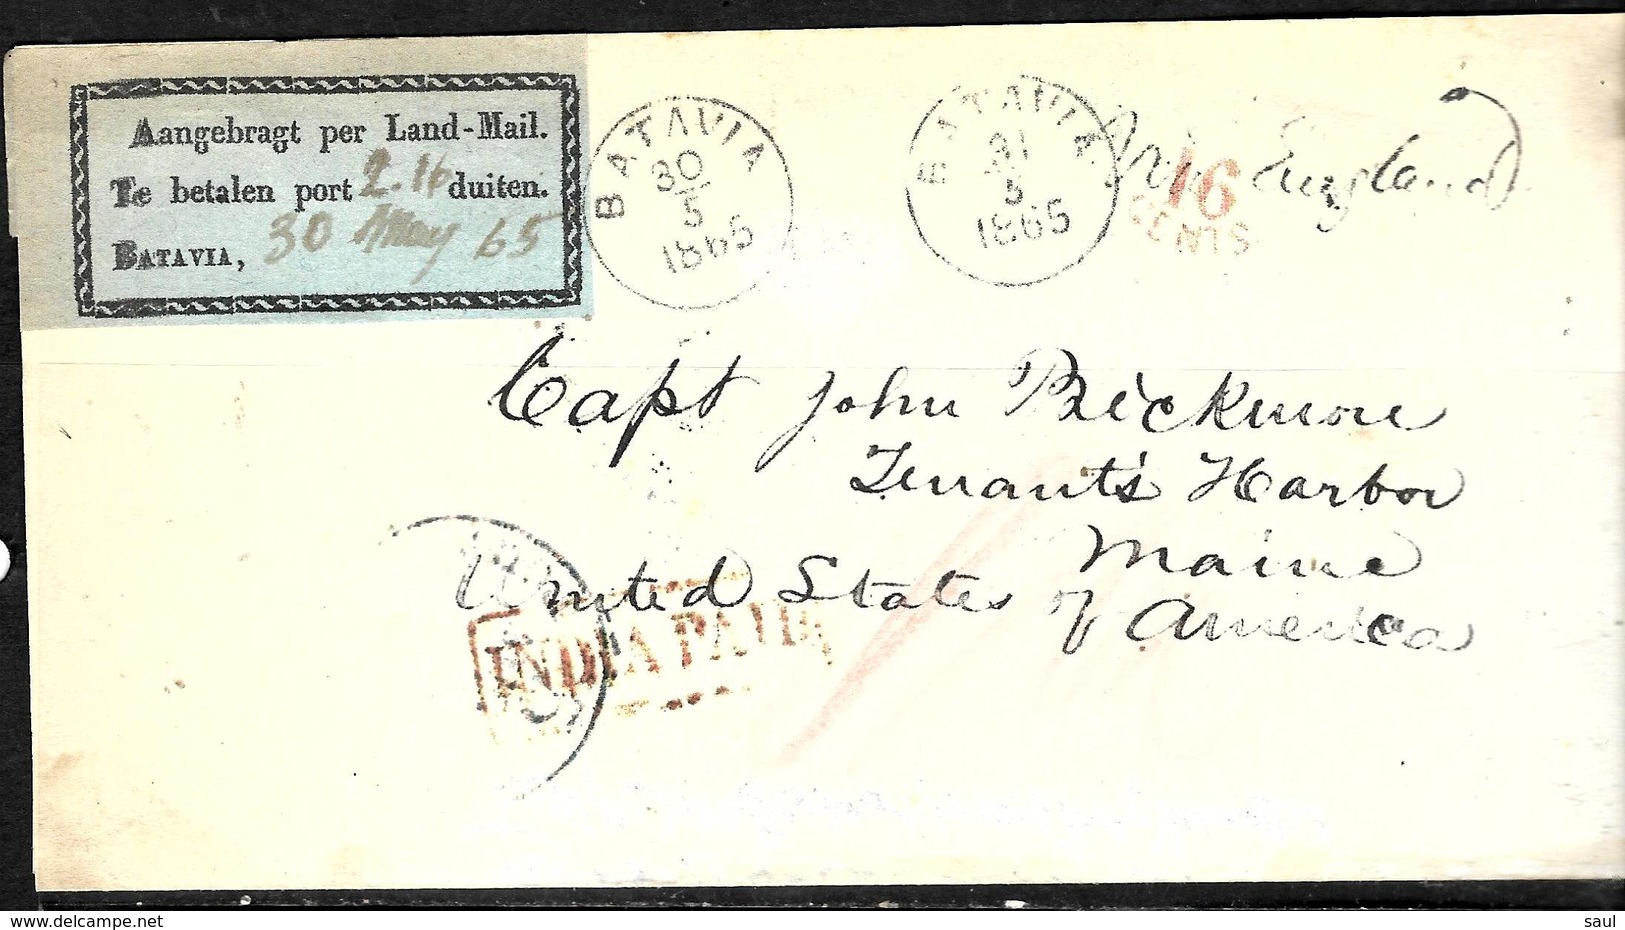 Aangebragt per Land-Mail.
Te betalen port 2.16 duiten.
BATAVIA, 30 May 65
BATAVIA
30
5
1865
BATAVIA
31
5
1865
16
CENTS
England
Capt John Bickmore
Tenant's Harbor
Maine
United States of America
INDIA PAID
delcampe.net
saul